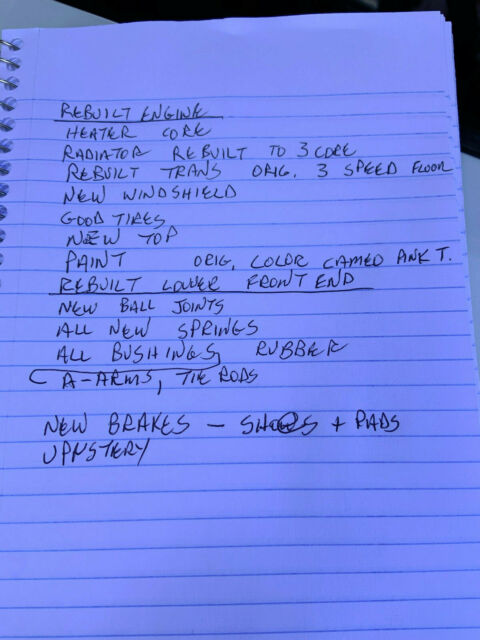 REBUILT ENGINE
HEATER CORE
RADIATOR REBUILT TO 3 CORE
REBUILT TRANS ORIG. 3 SPEED FLOOR
NEW WINDSHIELD
GOOD TIRES
NEW TOP
PAINT ORIG. COLOR CAMEO PINK T.
REBUILT LOWER FRONT END
NEW BALL JOINTS
ALL NEW SPRINGS
ALL BUSHINGS RUBBER
A-ARMS, TIE RODS
NEW BRAKES - SHOES + PADS
UPNSTERY